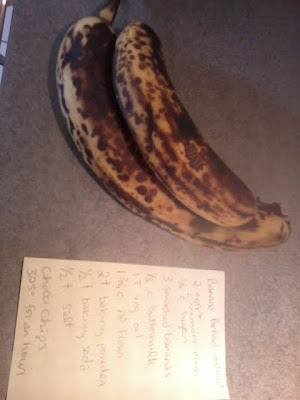 Banana Bread
2 eggs
c sugar
3 smashed bananas
1/3 c buttermilk
1 T veg oil
1 3/4 c flour
2 t baking powder
1/2 t baking soda
1/2 t salt
Choco Chips
for an hour